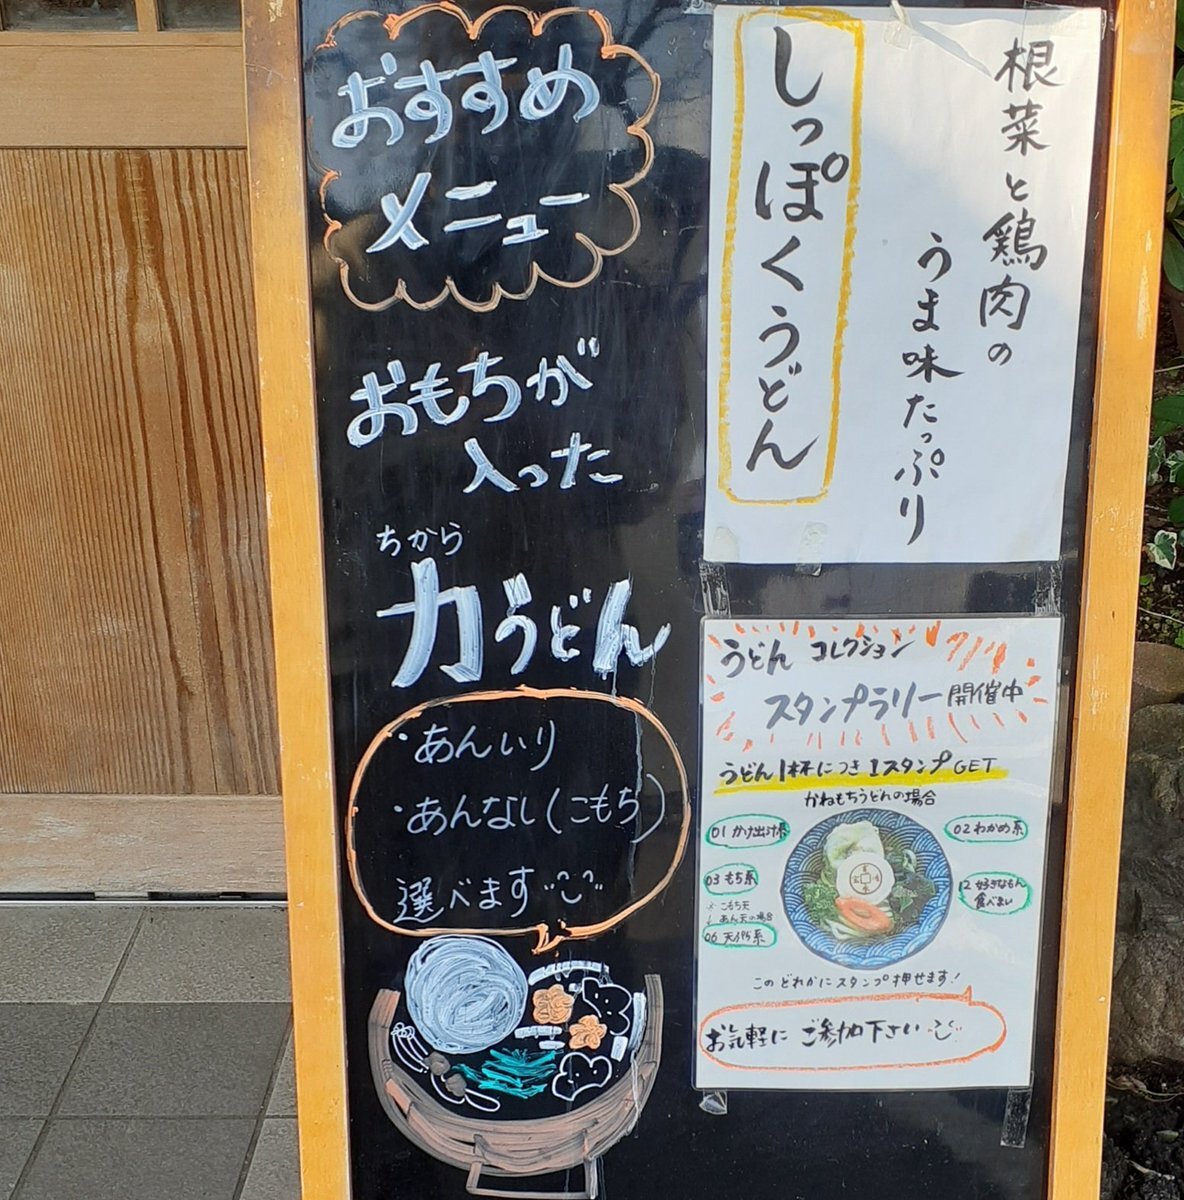 おすすめ
メニュー
おもちが
入った
ちから
力うどん
・あんいり
・あんなし(こもち)
選べます
根菜と鶏肉の
うま味たっぷり
しっぽくうどん
うどん コレクション
スタンプラリー開催中
うどん1杯につき1スタンプGET
かねもちうどんの場合
01 かけ出汁系
02 わかめ系
03 もち系
※こもち天
あん天の場合
06 天ぷら系
12 好きなもん
食べまい
このどれかにスタンプ押せます!
お気軽に ご参加下さい